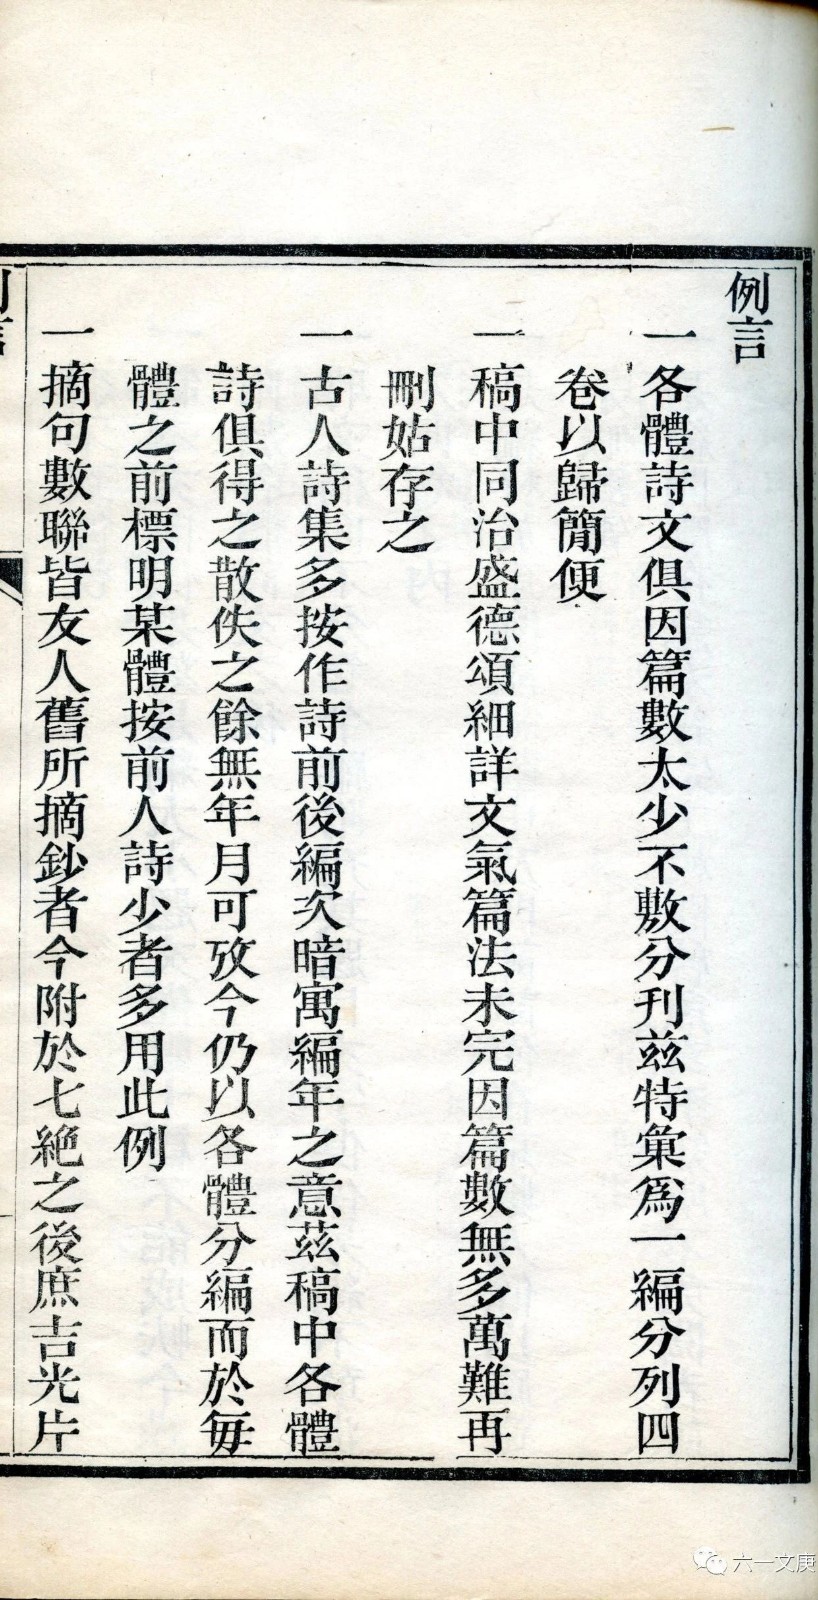 例言
一各體詩文俱因篇數太少不敷分刊茲特彙爲一編分列四
卷以歸簡便
一稿中同治盛德頌細詳文氣篇法未完因篇數無多萬難再
刪姑存之
一古人詩集多按作詩前後編次暗寓編年之意茲稿中各體
詩俱得之散佚之餘無年月可攷今仍以各體分編而於每
體之前標明某體按前人詩少者多用此例
一摘句數聯皆友人舊所摘鈔者今附於七絕之後庶吉光片
例言
六一文庚